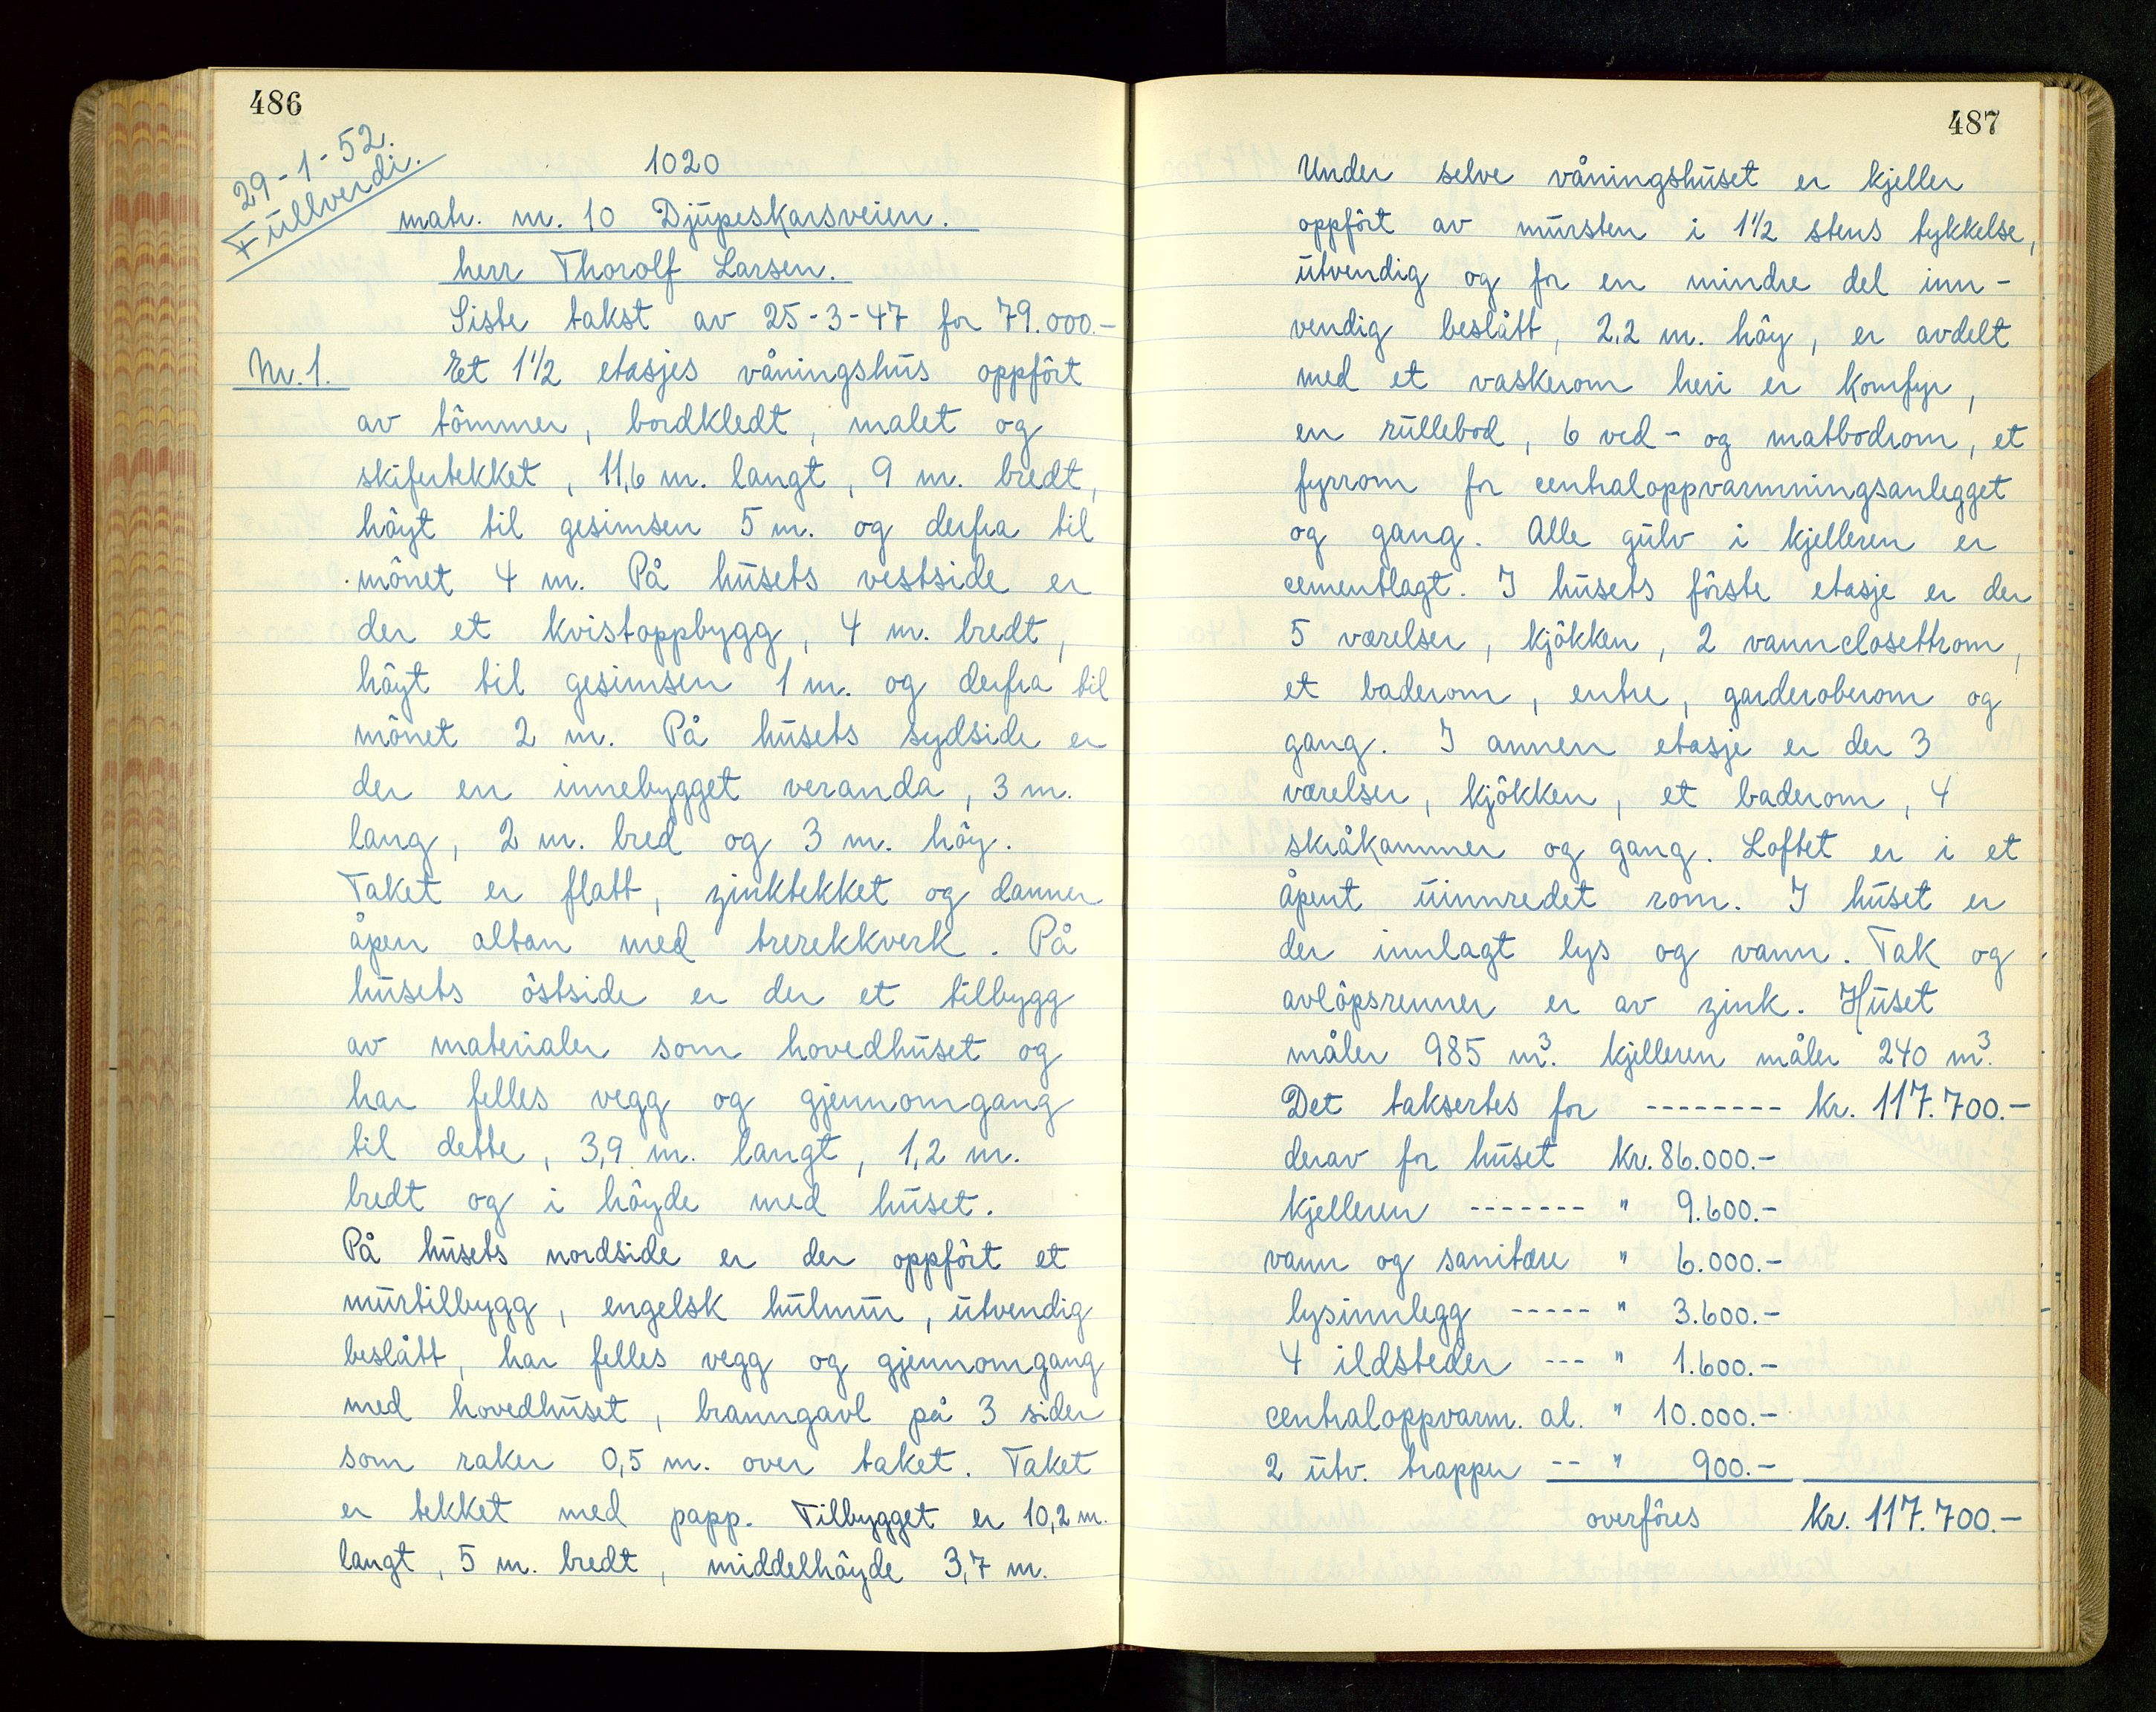 486
29-1-52.
Fullverdi.
1020
matr. nr. 10 Djupeskarsveien.
herr Thorolf Larsen.
Siste takst av 25-3-47 for 79.000.-
Nr. 1. Et 1 1/2 etasjes våningshus oppfôrt
av tômmer, bordkledt, malet og
skifertekket, 11,6 m. langt, 9 m. bredt,
hôyt til gesimsen 5 m. og derfra til
mônet 4 m. På husets vestside er
der et kvistoppbygg, 4 m. bredt,
hôyt til gesimsen 1 m. og derfra til
mônet 2 m. På husets sydside er
der en innebygget veranda, 3 m.
lang, 2 m. bred og 3 m. hôy.
Taket er flatt, zinktekket og danner
åpen altan med trerekkverk. På
husets ôstside er der et tilbygg
av materialer som hovedhuset og
har felles vegg og gjennomgang
til dette, 3,9 m. langt, 1,2 m.
bredt og i hôyde med huset.
På husets nordside er der oppfôrt et
murtilbygg, engelsk hulmur, utvendig
beslått, har felles vegg og gjennomgang
med hovedhuset, branngavl på 3 sider
som raker 0,5 m. over taket. Taket
er tekket med papp. Tilbygget er 10,2 m.
langt, 5 m. bredt, middelhôyde 3,7 m.
487
Under selve våningshuset er kjeller
oppfôrt av mursten i 1 1/2 stens tykkelse,
utvendig og for en mindre del inn-
vendig beslått, 2,2 m. hôy, er avdelt
med et vaskerom heri er komfyr,
en rullebod, 6 ved- og matbodrom, et
fyrrom for centraloppvarmningsanlegget
og gang. Alle gulv i kjelleren er
cementlagt. I husets fôrste etasje er der
5 værelser, kjôkken, 2 vannclosettrom,
et baderom, entre, garderoberom og
gang. I annen etasje er der 3
værelser, kjôkken, et baderom, 4
skråkammer og gang. Loftet er i et
åpent uinnredet rom. I huset er
der innlagt lys og vann. Tak og
avlôpsrenner er av zink. Huset
måler 985 m³. kjelleren måler 240 m³.
Det taksertes for -------- kr. 117.700.-
derav for huset kr. 86.000.-
kjelleren ------- " 9.600.-
vann og sanitære " 6.000.-
lysinnlegg ----- " 3.600.-
4 ildsteder --- " 1.600.-
centraloppvarm. al. " 10.000.-
2 utv. trapper -- " 900.-
overfôres kr. 117.700.-